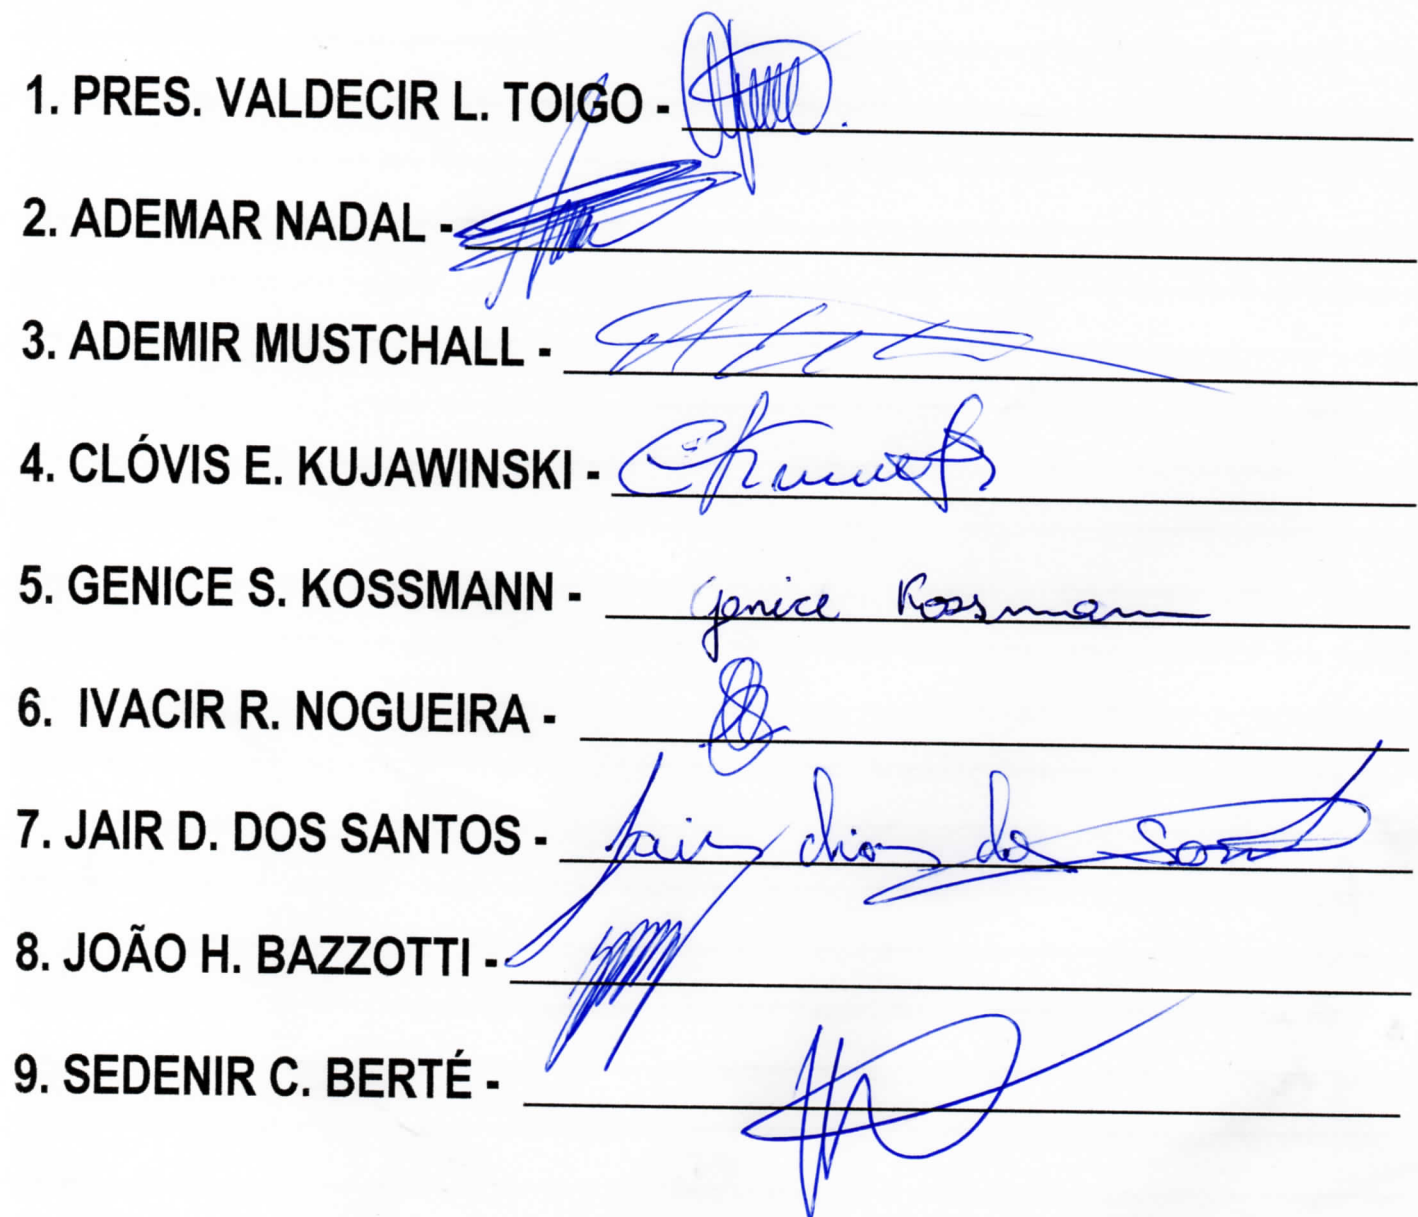 1. PRES. VALDECIR L. TOIGO -
2. ADEMAR NADAL -
3. ADEMIR MUSTCHALL -
4. CLÓVIS E. KUJAWINSKI -
5. GENICE S. KOSSMANN - Genice Kossmann
6. IVACIR R. NOGUEIRA -
7. JAIR D. DOS SANTOS - Jair dias do
8. JOÃO H. BAZZOTTI -
9. SEDENIR C. BERTÉ -